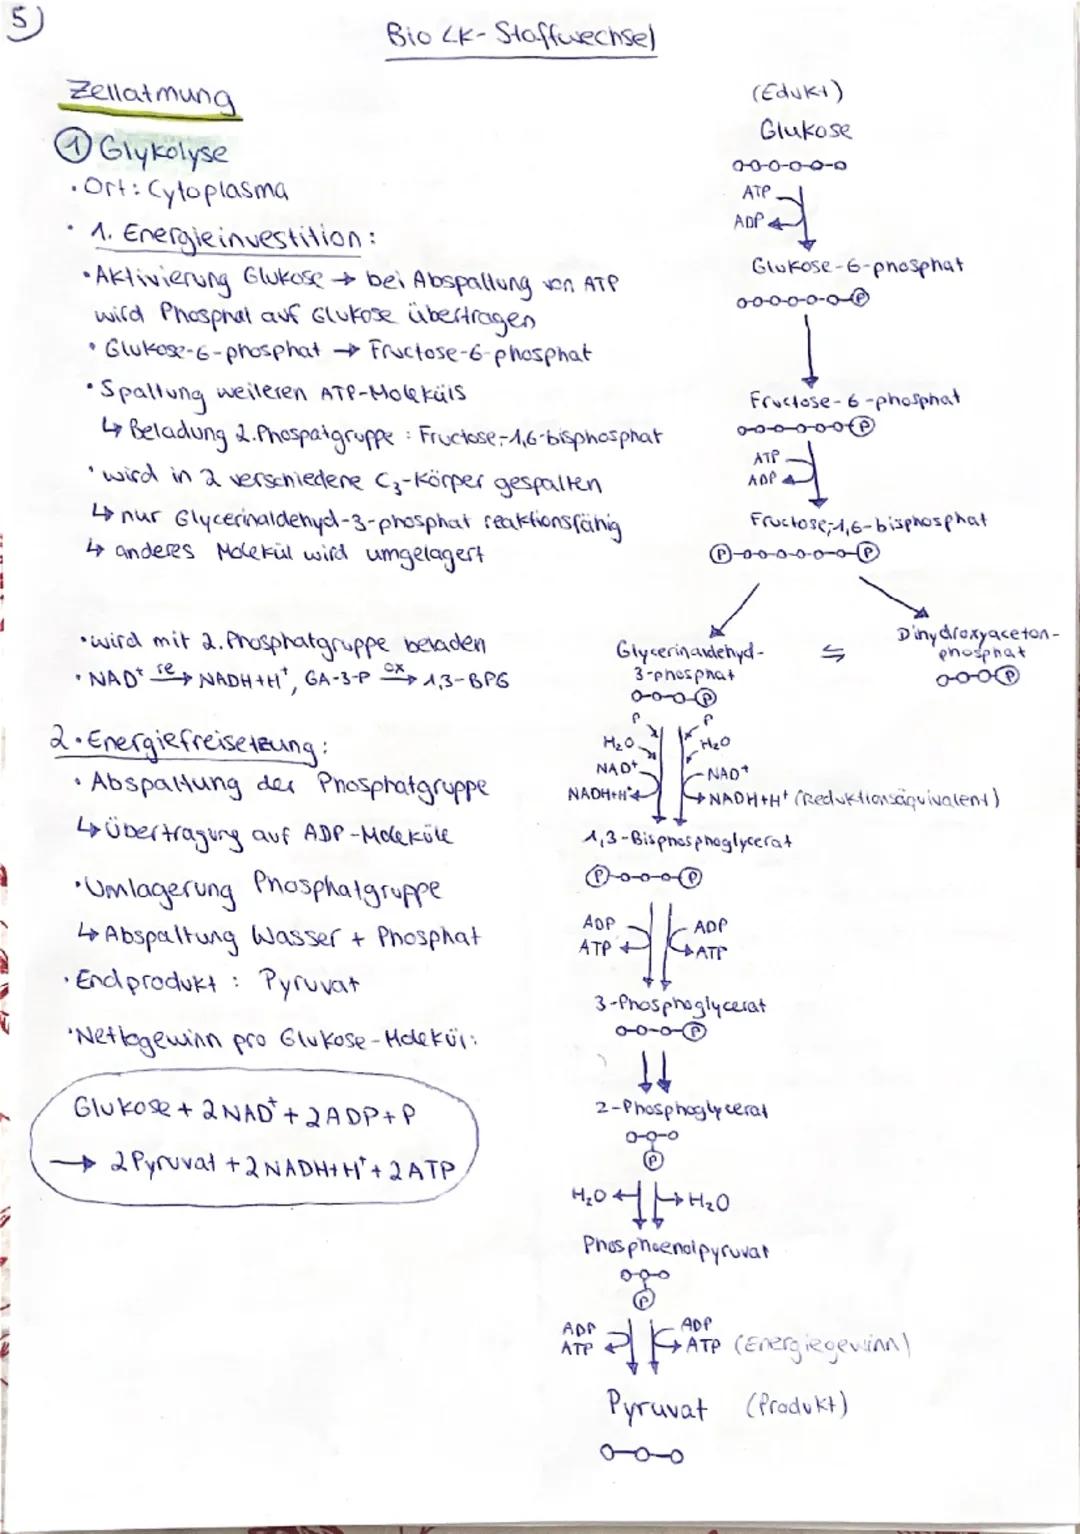 5)
Bio LK- Stoffwechsel
Zellatmung
① Glykolyse
· Ort: Cytoplasma
· 1. Energieinvestition:
· Aktivierung Glukose → bei Abspaltung von ATP
wird Phosphat auf Glukose übertragen
· Glukose-6-phosphat → Fructose-6-phosphat
· Spaltung weiteren ATP-Moleküls
↳ Beladung 2. Phospatgruppe : Fructose-1,6-bisphosphat
· wird in 2 verschiedene C₃-Körper gespalten
↳ nur Glycerinaldehyd-3-phosphat reaktionsfähig
↳ anderes Molekül wird umgelagert
· wird mit 2. Phosphatgruppe beladen
· NAD⁺ re→ NADH+H⁺, GA-3-P ox→ 1,3-BPG
2. Energiefreisetzung:
· Abspaltung der Phosphatgruppe
↳ Übertragung auf ADP-Moleküle
· Umlagerung Phosphatgruppe
↳ Abspaltung Wasser + Phosphat
· Endprodukt : Pyruvat
· Nettogewinn pro Glukose-Molekül:
Glukose + 2NAD⁺ + 2ADP + P
→ 2 Pyruvat + 2 NADH+H⁺ + 2 ATP
(Edukt)
Glukose
ATP
ADP
Glukose-6-phosphat
P
Fructose-6-phosphat
P
ATP
ADP
Fructose-1,6-bisphosphat
P P
Glycerinaldehyd-
3-phosphat
P
⇋
Dihydroxyaceton-
phosphat
P
P P
H₂O H₂O
NAD⁺ NAD⁺
NADH+H⁺ NADH+H⁺ (Reduktionsäquivalent)
1,3-Bisphosphoglycerat
P P
ADP ADP
ATP ATP
3-Phosphoglycerat
P
2-Phosphoglycerat
P
H₂O H₂O
Phosphoenolpyruvat
P
ADP ADP
ATP ATP (Energiegewinn)
Pyruvat (Produkt)